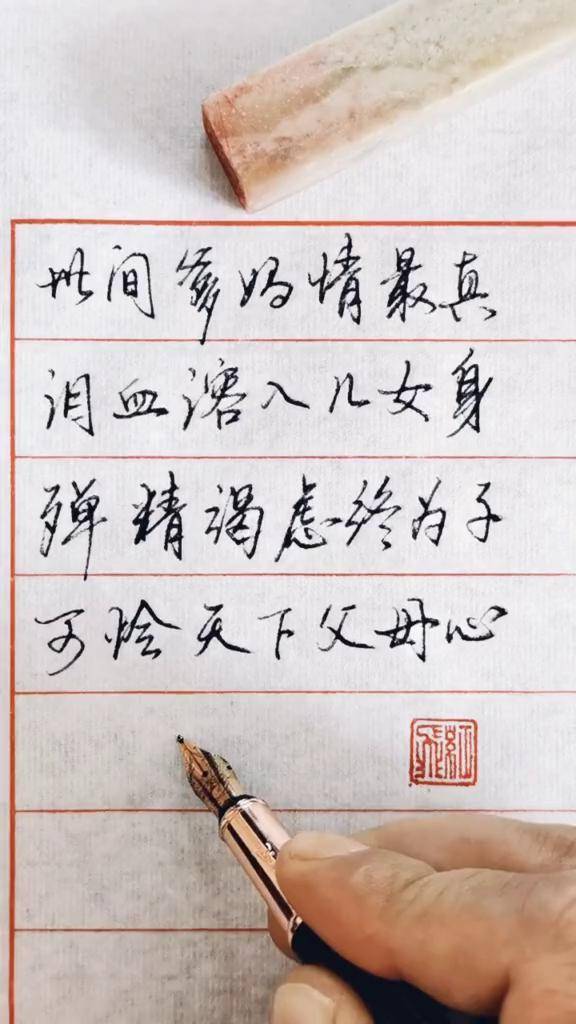 世间爹妈情最真
泪血溶入儿女身
殚精竭虑终为子
可怜天下父母心